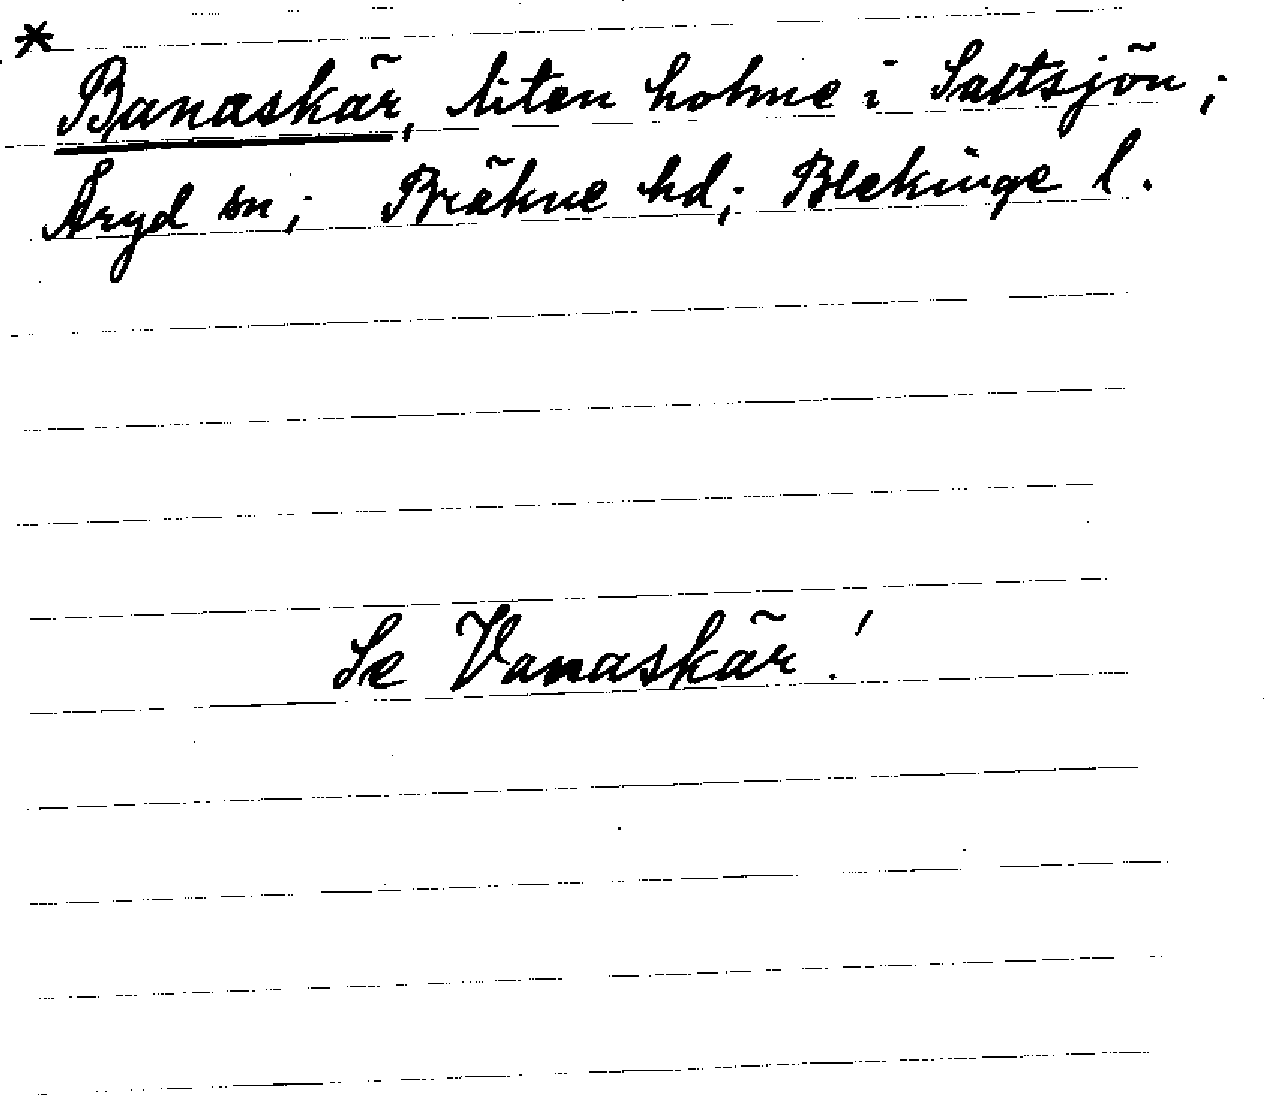 * Banaskär, liten holme i Saltsjön;
Åryd sn; Bräkne hd; Blekinge l.
Se Vanaskär!